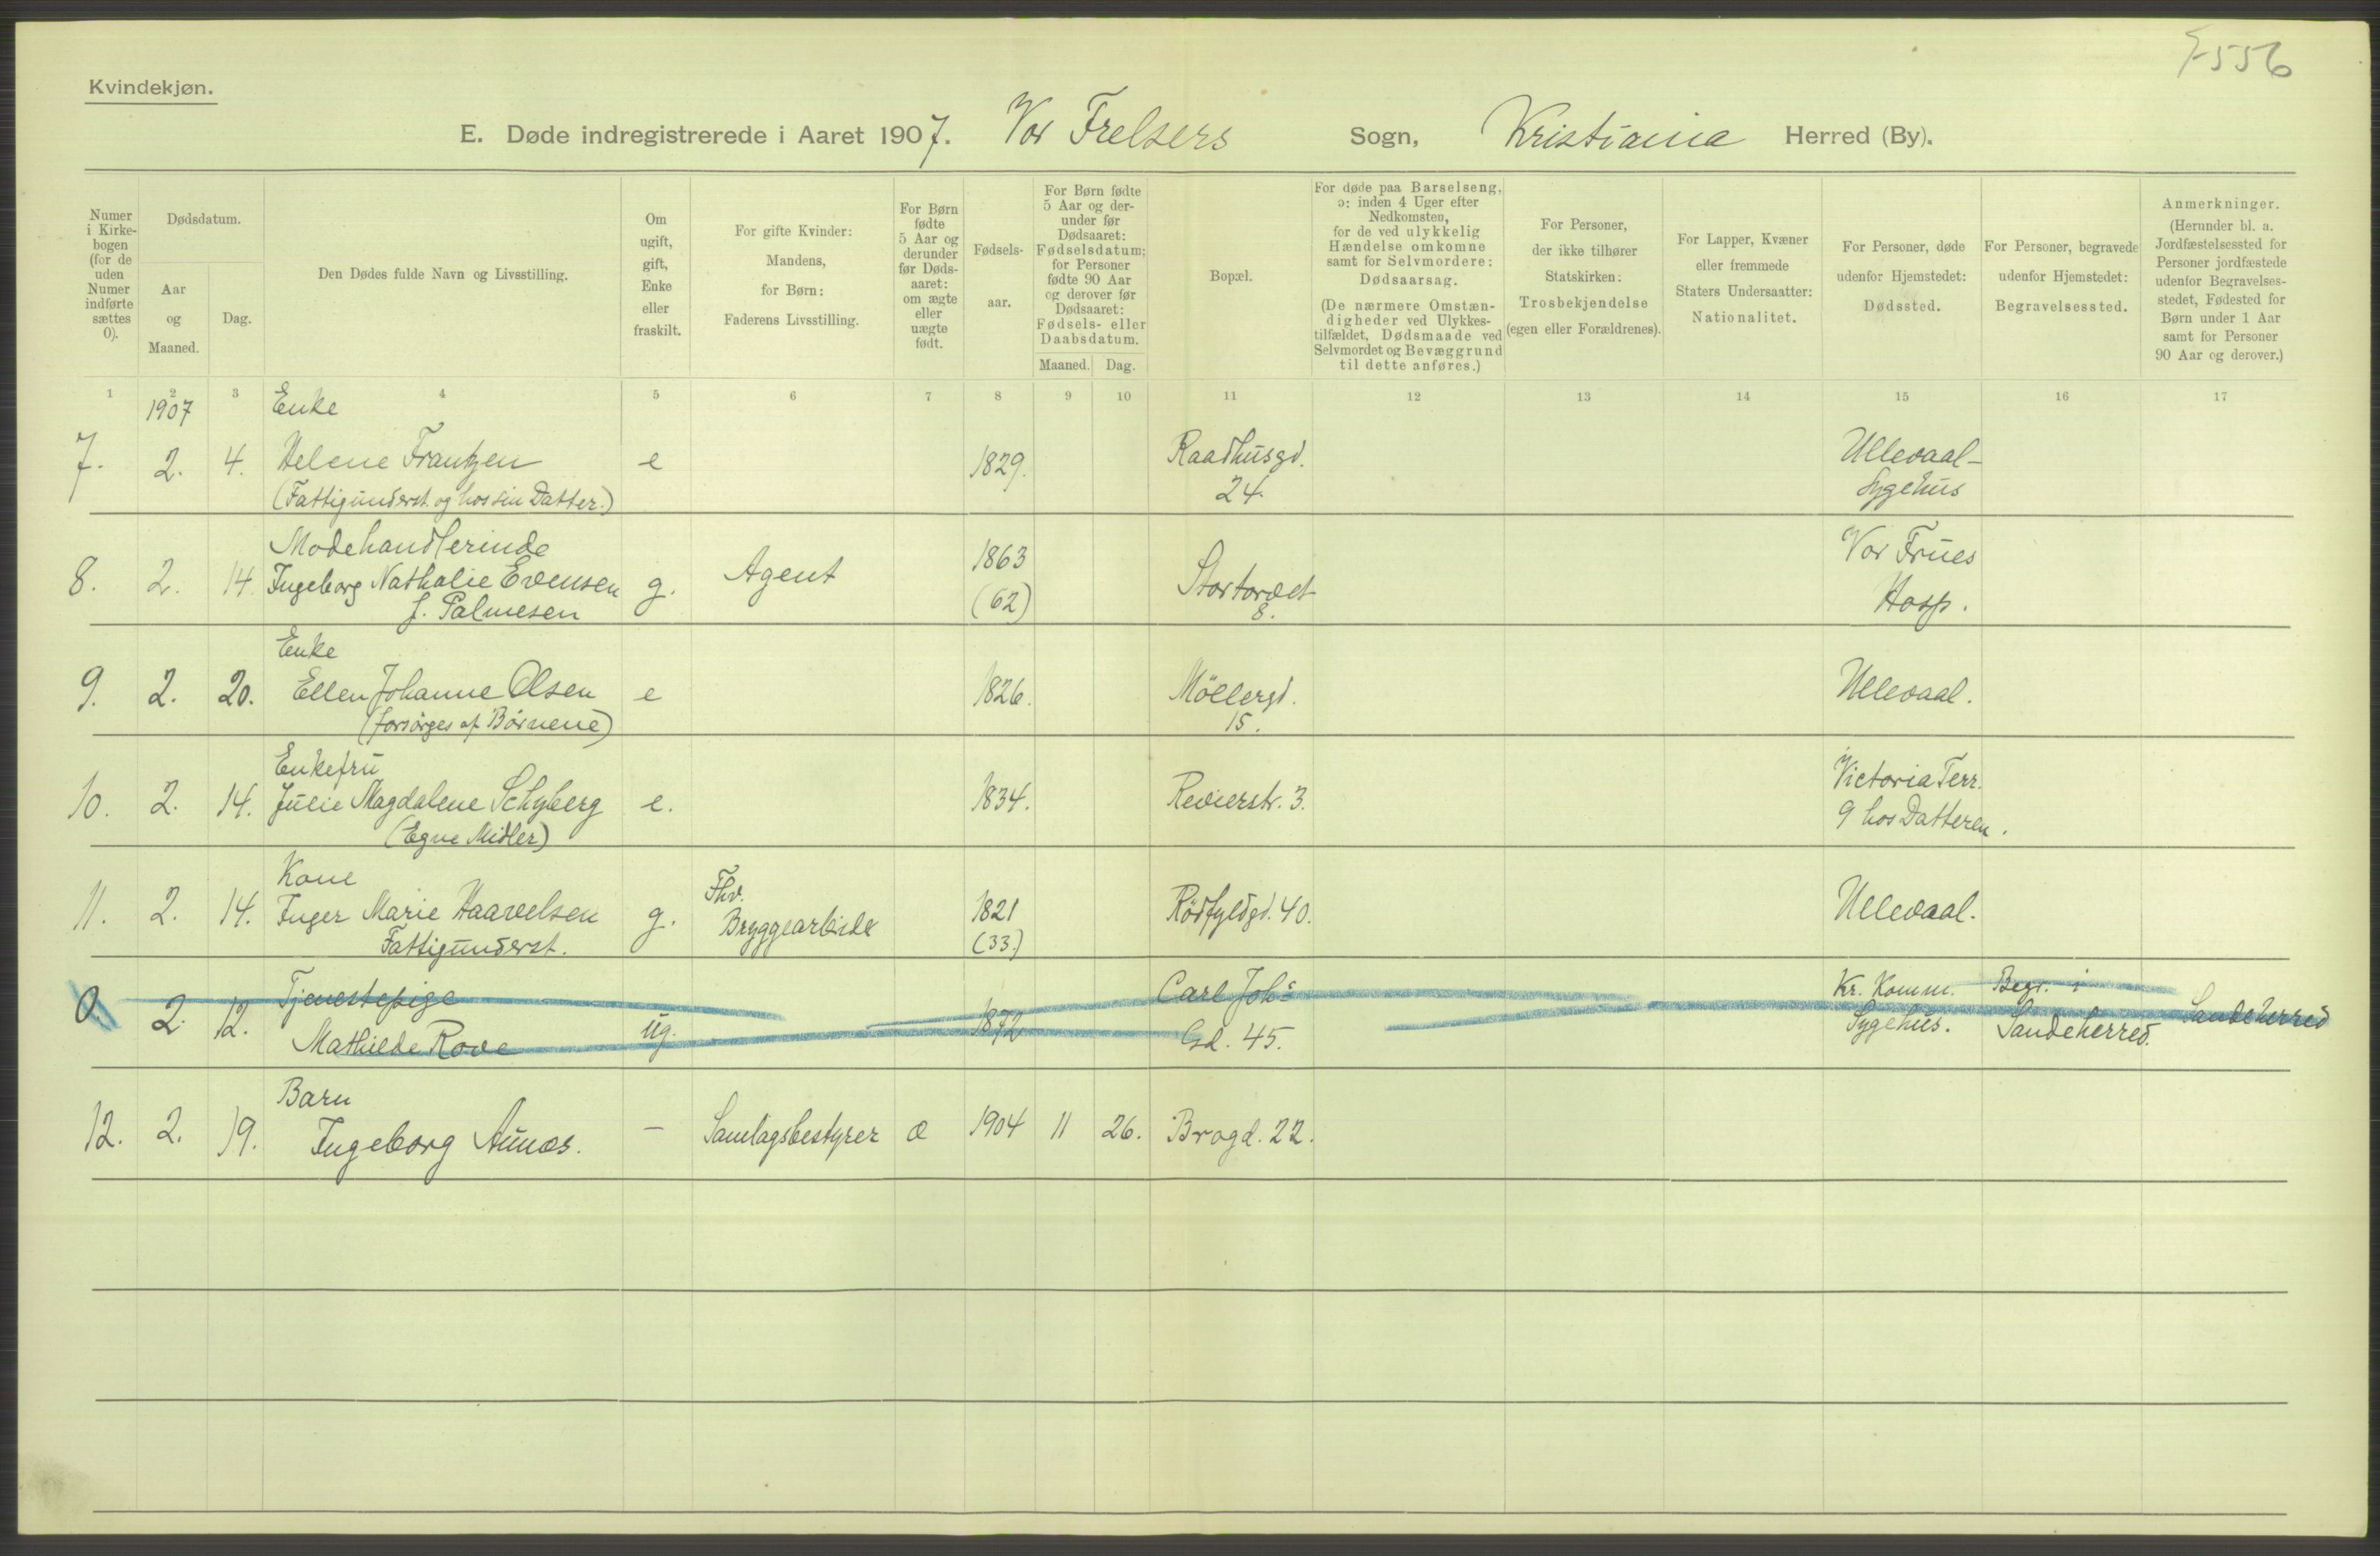 7556
Kvindekjøn.
E. Døde indregistrerede i Aaret 1907. Vor Frelsers Sogn, Kristiania Herred (By).
Numer
i Kirke-
bogen
(for de
uden
Numer
indførte
sættes
0).
Dødsdatum.
Aar
og
Maaned.
Dag.
Den Dødes fulde Navn og Livsstilling.
Om
ugift,
gift,
Enke
eller
fraskilt.
For gifte Kvinder:
Mandens,
for Børn:
Faderens Livsstilling.
For Børn
fødte
5 Aar og
derunder
før Døds-
aaret:
om ægte
eller
uægte
født.
Fødsels-
aar.
For Børn fødte
5 Aar og der-
under før
Dødsaaret:
Fødselsdatum;
for Personer
fødte 90 Aar
og derover før
Dødsaaret:
Fødsels- eller
Daabsdatum.
Maaned. Dag.
Bopæl.
For døde paa Barselseng,
ɔ: inden 4 Uger efter
Nedkomsten,
for de ved ulykkelig
Hændelse omkomne
samt for Selvmordere:
Dødsaarsag.
(De nærmere Omstæn-
digheder ved Ulykkes-
tilfældet, Dødsmaade ved
Selvmordet og Bevæggrund
til dette anføres.)
For Personer,
der ikke tilhører
Statskirken:
Trosbekjendelse
(egen eller Forældrenes).
For Lapper, Kvæner
eller fremmede
Staters Undersaatter:
Nationalitet.
For Personer, døde
udenfor Hjemstedet:
Dødssted.
For Personer, begravede
udenfor Hjemstedet:
Begravelsessted.
Anmerkninger.
(Herunder bl. a.
Jordfæstelsessted for
Personer jordfæstede
udenfor Begravelses-
stedet, Fødested for
Børn under 1 Aar
samt for Personer
90 Aar og derover.)
1 2 3 4 5 6 7 8 9 10 11 12 13 14 15 16 17
1907 Enke
7. 2. 4. Helene Frantzen e 1829. Raadhusgd. Ullevaal-
(Fattigunderst. og hos sin Datter.) 24. Sygehus
Modehandlerinde 1863 Vor Frues
8. 2. 14. Ingeborg Nathalie Evensen g. Agent Stortorvet
f. Palmesen (62) 8. Hosp.
Enke
9. 2. 20. Ellen Johanne Olsen e 1826. Möllergd. Ullevaal.
(forsörges af Börnene) 15.
Enkefru Victoria Terr.
10. 2. 14. Julie Magdalene Schyberg e. 1834. Revierstr. 3.
(Egne Midler) 9 hos Datteren.
Kone Fhv.
11. 2. 14. Inger Marie Haavelsen g. Bryggearbeider 1821 Rödfyldgd. 40. Ullevaal.
Fattigunderst. (33.)
Tjenestepige Carl Johs Kr. Komm. Begr. i
0. 2. 12. Mathilde Rove ug. 1872 Gd. 45. Sygehus. Sandeherred. Sandeherred
Barn
12. 2. 19. Ingeborg Aunæs. – Samlagsbestyrer æ 1904 11 26. Brogd. 22.